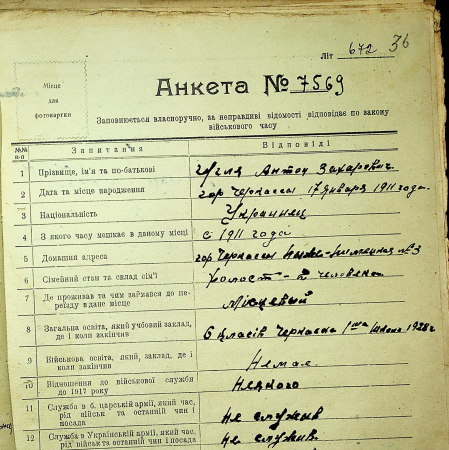 36
Літ 672
Місце
для
фотокартки
Анкета № 7569
Заповнюється власноручно, за неправдиві відомості відповідає по закону
військового часу
№№
п-п
Запитання
Відповіді
1 Прізвище, ім'я та по-батькові
Антон Захарович
2 Дата та місце народження
гор Черкассы 17 января 1911 года.
3 Національність
Украинец
4 З якого часу мешкає в даному місці
С 1911 года
5 Домашня адреса
гор Черкассы №3
6 Сімейний стан та склад сім'ї
холост - 2 человека
7 Де проживав та чим займався до пе-
реїзду в дане місце
Місцевый
8 Загальна освіта, який учбовий заклад,
де і коли закінчив
6 класів Черкаська 1ша школа 1928 г
9 Військова освіта, який, заклад, де і
коли закінчив
Немає.
10 Відношення до військової служби
до 1917 року
Ніякого
11 Служба в б. царській армії, який час,
рід військ та останній чин і
посада
не служив
12 Служба в Українській армії, який час,
рід військ та останній чин і посада
не служив.